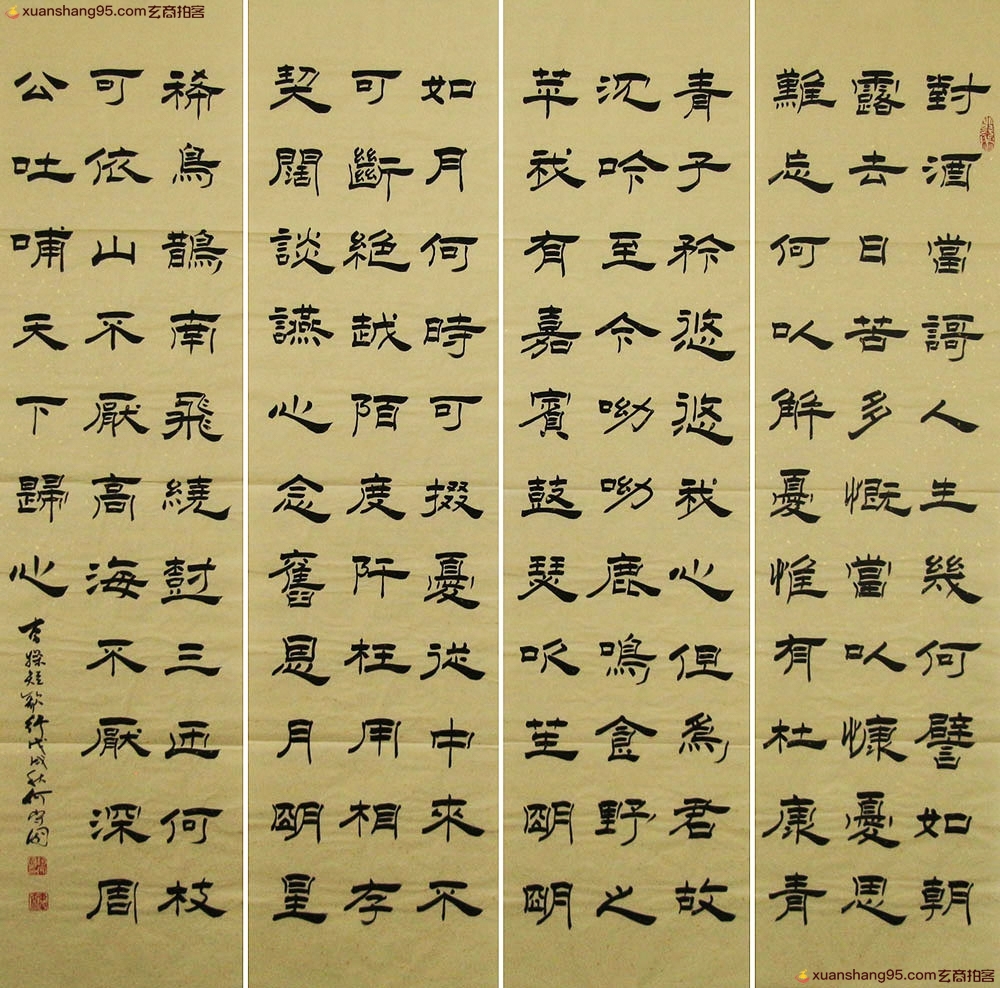 xuanshang95.com玄商拍客
對酒當謌人生幾何譬如朝
露去日苦多慨當以慷憂思
難忘何以解憂惟有杜康青
青子衿悠悠我心但為君故
沈吟至今呦呦鹿鳴食野之
苹我有嘉賓鼓瑟吹笙朙朙
如月何時可掇憂從中來不
可斷絕越陌度阡枉用相存
契闊談讌心念舊恩月朙星
稀鳥鵲南飛繞樹三匝何枝
可依山不厭高海不厭深周
公吐哺天下歸心
曹操短歌行戊戌秋何
xuanshang95.com玄商拍客